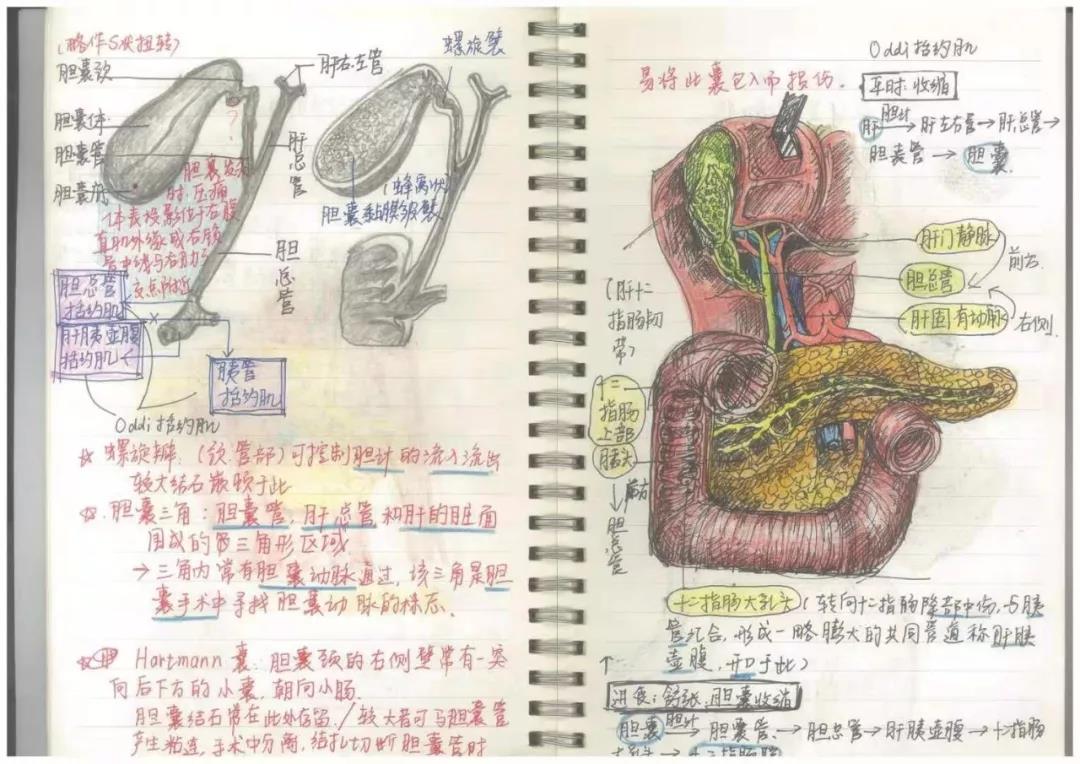 (略作S状扭转)
胆囊颈
胆囊体
胆囊管
胆囊底
肝右左管
螺旋襞
肝总管
胆总管
(蜂窝状)
胆囊黏膜皱襞
胆囊发炎
时,压痛
体表投影位于右腹
直肌外缘或右锁
骨中线与右肋弓
交点附近
?
胆总管
括约肌
肝胰壶腹
括约肌
胰管
括约肌
Oddi括约肌
☆ 螺旋瓣.(颈.管部)可控制胆汁的流入流出
较大结石嵌顿于此
☆.胆囊三角:胆囊管,肝总管和肝的脏面
围成的三角形区域
→三角内常有胆囊动脉通过,该三角是胆
囊手术中寻找胆囊动脉的标志.
Hartmann囊:胆囊颈的右侧壁常有一突
向后下方的小囊,朝向小肠.
胆囊结石常在此处存留./较大者可与胆囊管
产生粘连,手术中分离,结扎切断胆囊管时
易将此囊包入而损伤.
Oddi括约肌
平时:收缩
肝 胆汁→肝左右管→肝总管→
胆囊管→胆囊
肝门静脉
前方
胆总管
肝固有动脉
右侧
(肝十二指肠韧带)
十二
指肠
上部
胰头
前方
胆总管
十二指肠大乳头(转向十二指肠降部中份,与胰
管汇合,形成一略膨大的共同管道称肝胰
壶腹,开口于此)
↑
进食:舒张.胆囊收缩
胆囊 胆汁→胆囊管→胆总管→肝胰壶腹→十二指肠